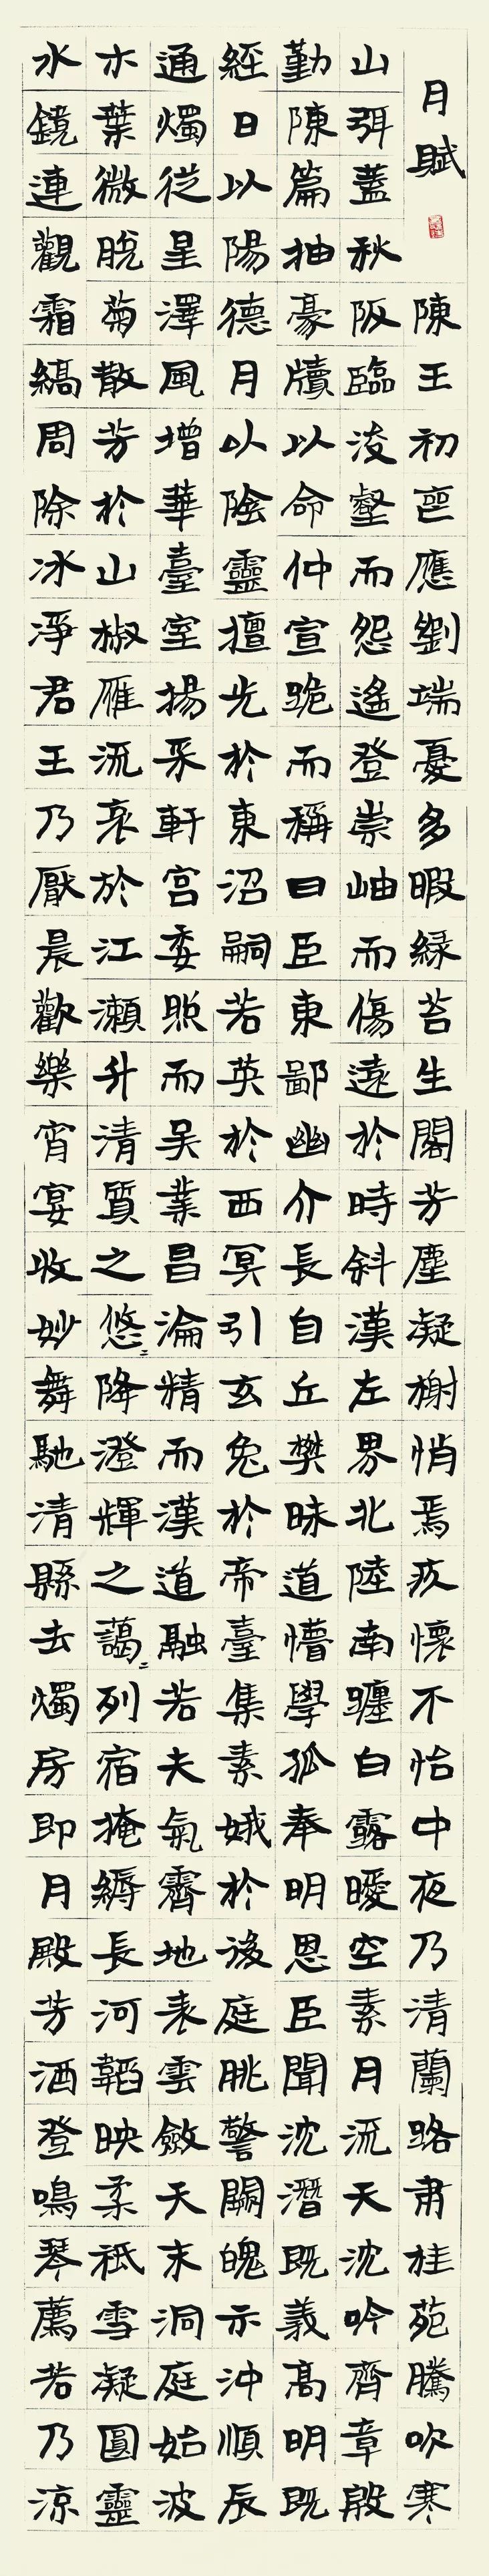 月賦 陳王初喪應劉端憂多暇綠苔生閣芳塵凝榭悄焉疚懷不怡中夜乃清蘭路肅桂苑騰吹寒
山弭蓋秋阪臨浚壑而怨遙登崇岫而傷遠於時斜漢左界北陸南躔白露曖空素月流天沈吟齊章殷
勤陳篇抽豪牘以命仲宣跪而稱曰臣東鄙幽介長自丘樊昧道懵學孤奉明恩臣聞沈潛既義高明既
經日以陽德月以陰靈擅光於東沼嗣若英於西冥引玄兔於帝臺集素娥於後庭朓警闕魄示沖順辰
通燭從星澤風增華臺室揚采軒宮委照而吳業昌淪精而漢道融若夫氣霽地表雲斂天末洞庭始波
木葉微脫菊散芳於山椒雁流哀於江瀨升清質之悠〻降澄輝之藹〻列宿掩縟長河韜映柔祇雪凝圓靈
水鏡連觀霜縞周除冰淨君王乃厭晨歡樂宵宴收妙舞馳清縣去燭房即月殿芳酒登鳴琴薦若乃涼